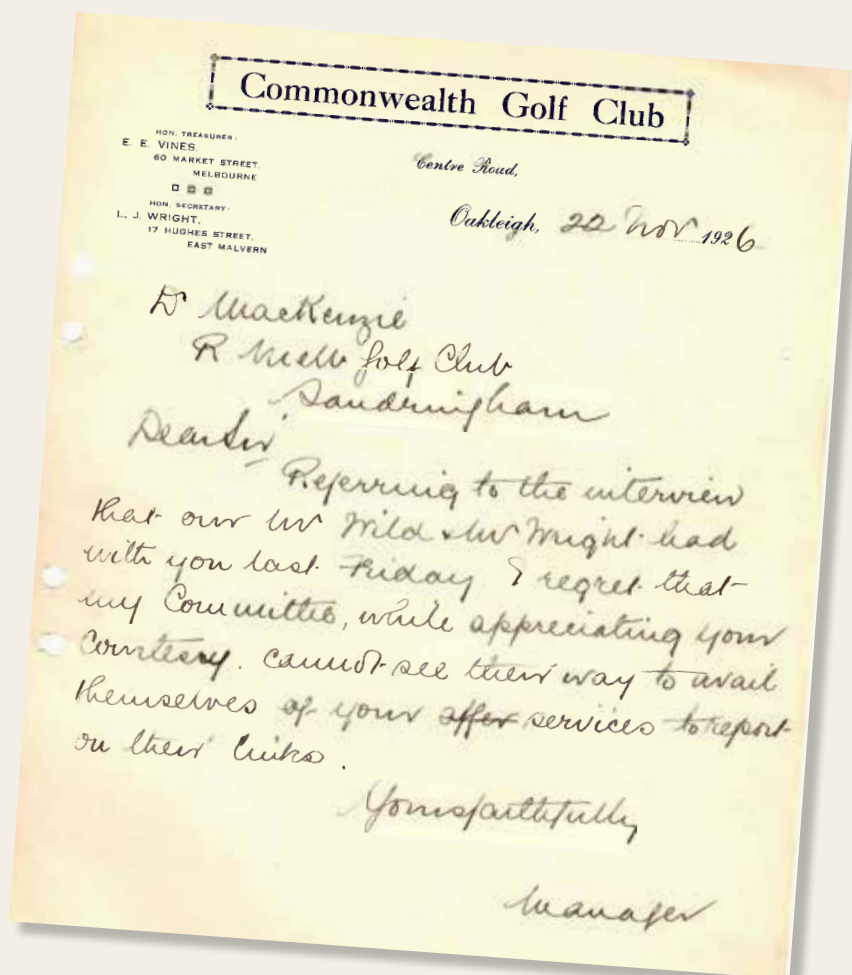 Commonwealth Golf Club
HON. TREASURER:
E. E. VINES.
60 MARKET STREET.
MELBOURNE
HON. SECRETARY:
L. J. WRIGHT.
17 HUGHES STREET,
EAST MALVERN
Centre Road,
Oakleigh, 22 Nov 1926
Dr MacKenzie
R Melb Golf Club
Sandringham
Dear Sir
Referring to the interview
that our Mr Wild & Mr Wright had
with you last Friday I regret that
my Committee, while appreciating your
Courtesy. cannot see their way to avail
themselves of your offer services to report
on their links.
Yours faithfully
Manager